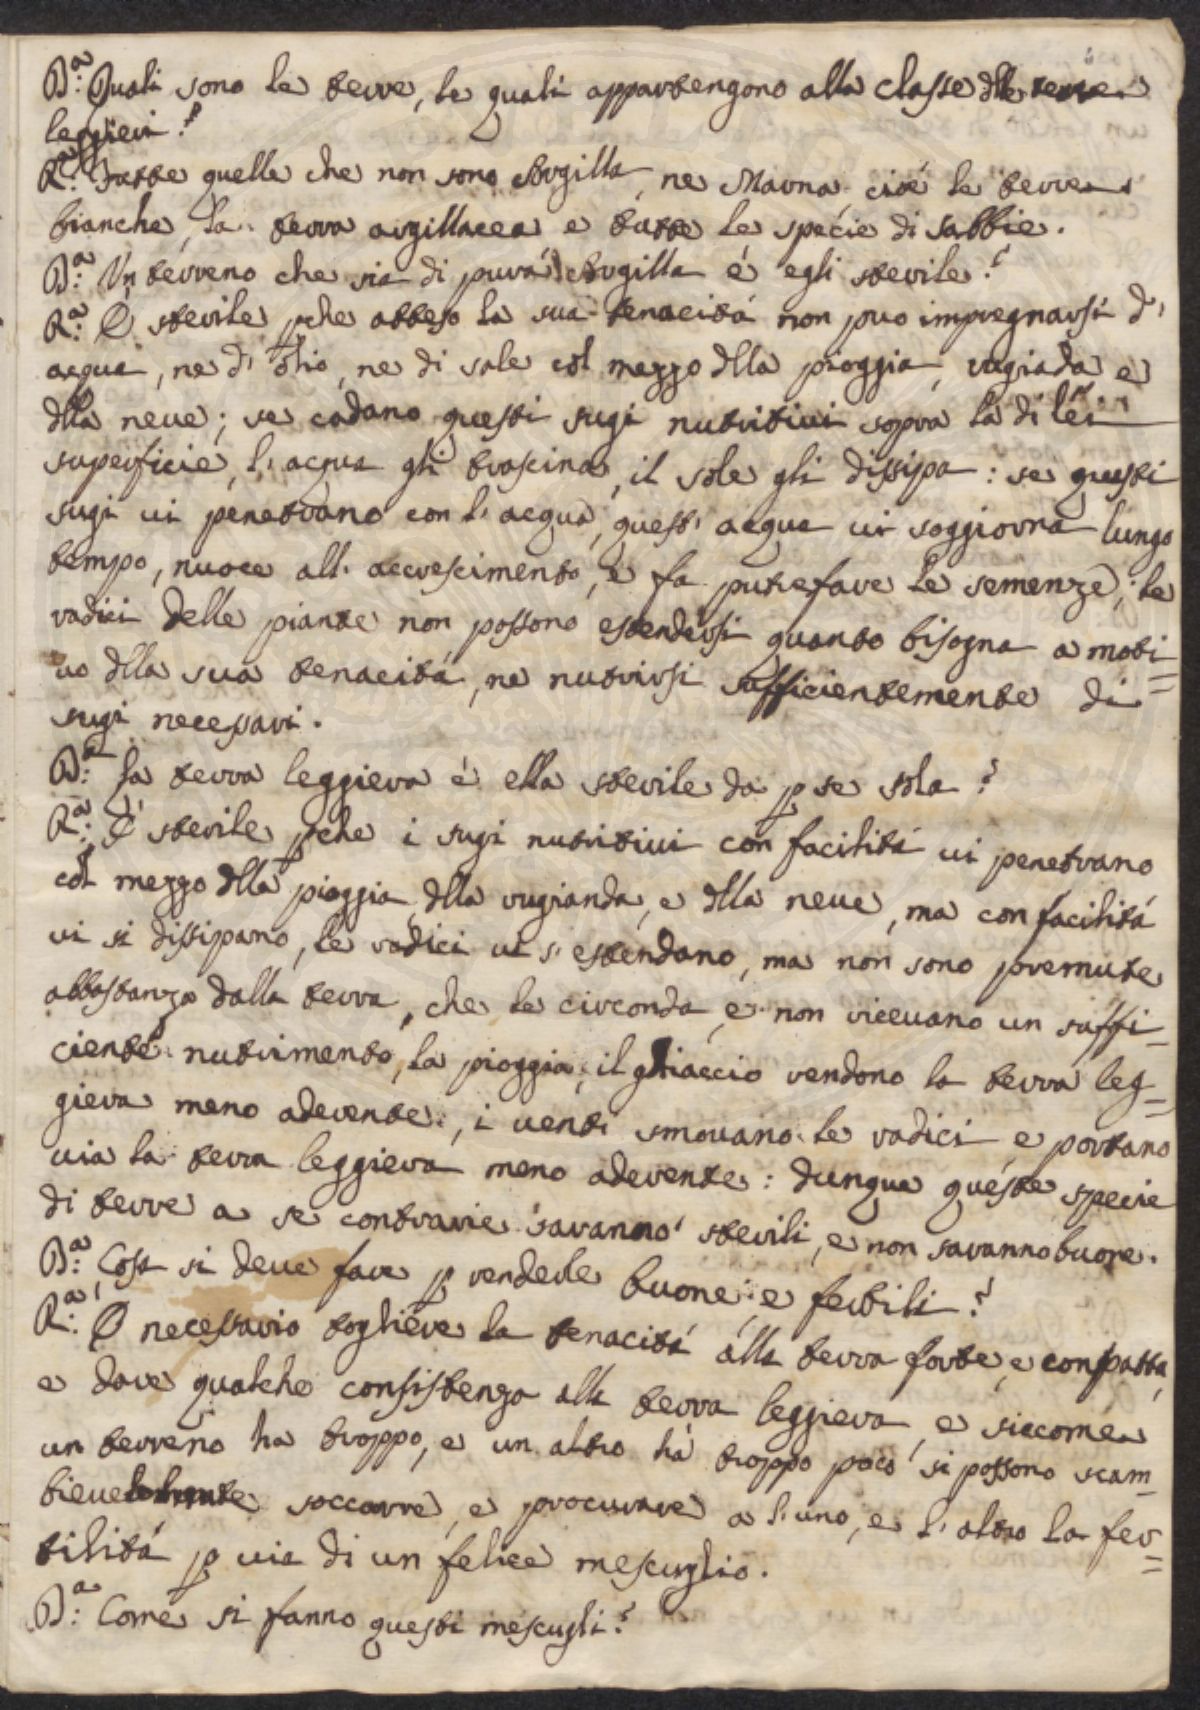 D.a Quali sono le terre, le quali appartengono alla classe dlle terre
leggieri?
R.a Tutte quelle che non sono Argilla, ne Marna, cioé le terre
bianche, la terra argillacea e tutte le specie di sabbie.
D.a Un terreno che sia di pura Argilla é egli sterile?
R.a É sterile pche atteso la sua tenacitá non puo impregnarsi d'
acqua, ne d' olio, ne di sale col mezzo dlla pioggia, rugiada e
dlla neue; se cadano questi sugi nutritiui sopra la di lei
superficie, l'acqua gli trascina, il sole gli dissipa: se questi
sugi ui penetrano con l'acqua, quest' acqua ui soggiorna lungo
tempo, nuoce all' accrescimento, e fa putrefare le semenze; le
radici delle piante non possono estendersi quanto bisogna a moti=
uo dlla sua tenacitá, ne nutrirsi sufficientemente di
sugi necessari.
D.a La terra leggiera é ella sterile da p se sola?
R.a É sterile pche i sugi nutritiui con facilitá ui penetrano
col mezzo dlla pioggia, dlla rugianda, e dlla neue, ma con facilitá
ui si dissipano, le radici ui s'estendano, ma non sono premute
abbastanza dalla terra, che le circonda, e non riceuano un suffi=
ciente nutrimento, la pioggia, il ghiaccio rendono la terra leg=
giera meno aderente, i uenti smouano le radici e portano
uia la terra leggiera meno aderente: dunque queste specie
di terre a se contrarie saranno sterili, e non saranno buone.
D.a Cosa si deue fare p renderle buone, e fertili?
R.a É necessario togliere la tenacitá alla terra forte, e compatta,
e dare qualche consistenza alla terra leggiera, e siccome
un terreno ha troppo, e un altro há troppo poco si possono scam=
bieuolmente soccorre, e procurare a l'uno, e l'altro la fer=
tilitá p uia di un felice mescuglio.
D.a Come si fanno questi mescugli?